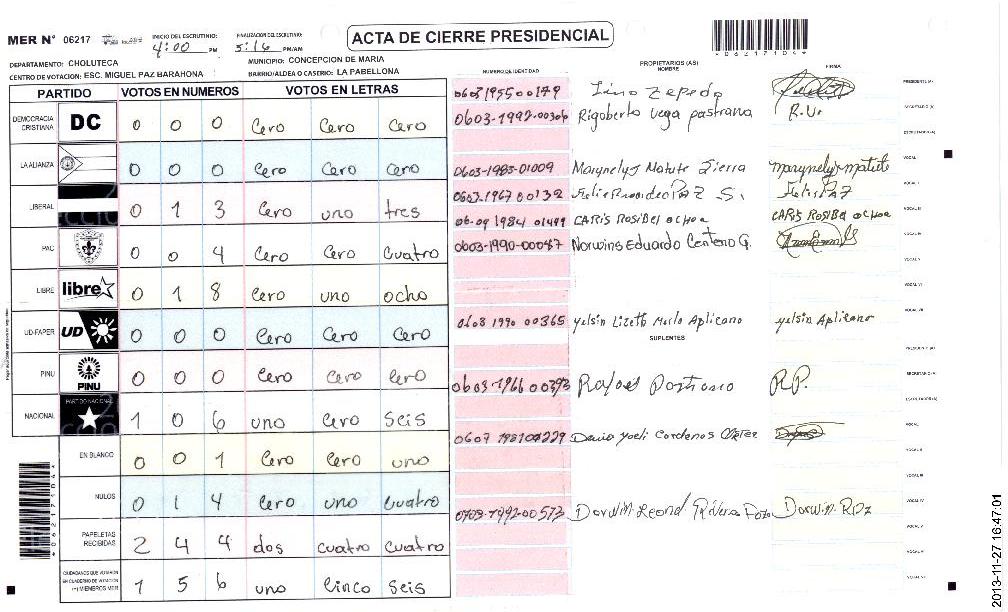 MER N° 06217
INICIO DEL ESCRUTINIO: 4:00 PM
FINALIZACION DEL ESCRUTINIO: 5:16 PM/AM
ACTA DE CIERRE PRESIDENCIAL
DEPARTAMENTO: CHOLUTECA
MUNICIPIO: CONCEPCION DE MARIA
CENTRO DE VOTACION: ESC. MIGUEL PAZ BARAHONA
BARRIO/ALDEA O CASERIO: LA PABELLONA
*06217104*
PARTIDO VOTOS EN NUMEROS VOTOS EN LETRAS
DEMOCRACIA CRISTIANA DC 0 0 0 Cero Cero Cero
LA ALIANZA 0 0 0 Cero Cero Cero
LIBERAL 0 1 3 Cero uno tres
PAC 0 0 4 Cero Cero Cuatro
LIBRE libre 0 1 8 Cero uno ocho
UD-FAPER UD 0 0 0 Cero Cero Cero
PINU PINU 0 0 0 Cero Cero Cero
NACIONAL PARTIDO NACIONAL 1 0 6 uno Cero seis
EN BLANCO 0 0 1 Cero Cero uno
NULOS 0 1 4 Cero uno Cuatro
PAPELETAS RECIBIDAS 2 4 4 dos cuatro cuatro
CIUDADANOS QUE VOTARON EN CUADERNO DE VOTACION (+) MIEMBROS MER 1 5 6 uno Cinco seis
NUMERO DE IDENTIDAD PROPIETARIOS (AS) NOMBRE FIRMA
0603195500179 Lino Zepeda PRESIDENTE (A)
0603-1992-00306 Rigoberto Vega pastrana R.V. SECRETARIO (A)
ESCRUTADOR (A)
0603-1985-01009 Marynelys Matute Sierra marynelys matute VOCAL I
0603-1967 00132 Felix PAZ S. Felix PAZ VOCAL II
06-09 1984 01499 CARIS RosiBel ochoa CARIS RosiBel ochoa VOCAL III
0603-1990-00087 Norwins Eduardo Centeno G. VOCAL IV
VOCAL V
VOCAL VI
0608 1990 00365 yelsin Lizeth Merlo Aplicano yelsin Aplicano VOCAL VII
SUPLENTES
PRESIDENTE (A)
0603-1966 00393 Rafael Pastrano R.P. SECRETARIO (A)
ESCRUTADOR (A)
VOCAL I
0607 198100229 Yoeli Cardenas VOCAL II
VOCAL III
VOCAL IV
0703-1992-00573 Dorwin Leonel Rivera
VOCAL V
VOCAL VI
VOCAL VII
2013-11-27 16:47:01